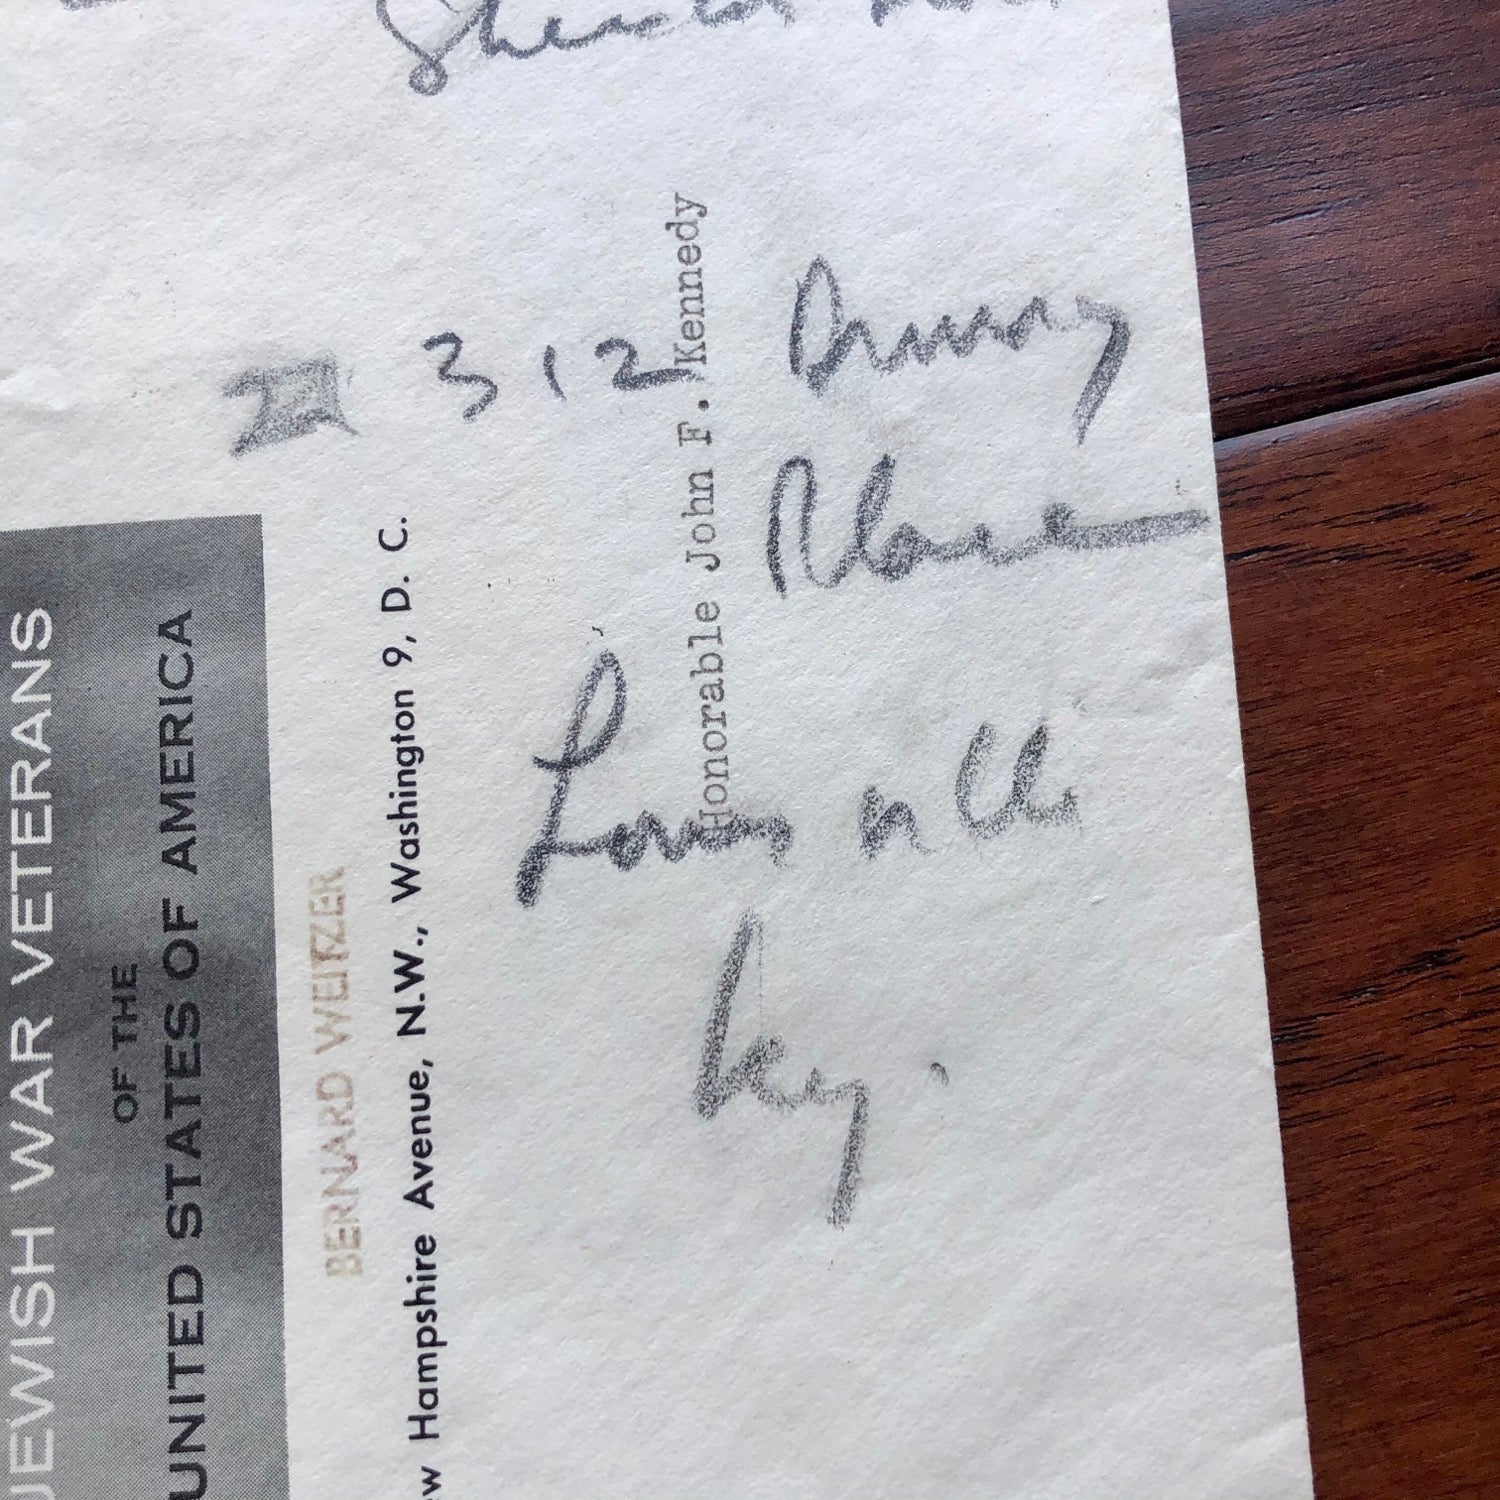 JEWISH WAR VETERANS
OF THE
UNITED STATES OF AMERICA
BERNARD WEITZER
Hampshire Avenue, N.W., Washington 9, D. C.
Honorable John F. Kennedy
312
Place
Louisville
Ky.